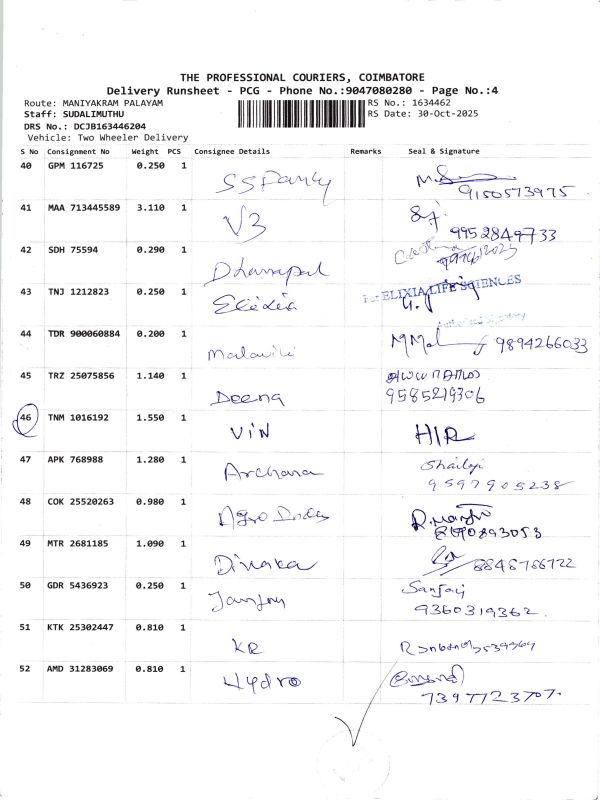 THE PROFESSIONAL COURIERS, COIMBATORE
Delivery Runsheet - PCG - Phone No.:9047080280 - Page No.:4
Route: MANIYAKRAM PALAYAM
RS No.: 1634462
Staff: SUDALIMUTHU
RS Date: 30-Oct-2025
DRS No.: DCJB163446204
Vehicle: Two Wheeler Delivery
S No Consignment No Weight PCS Consignee Details Remarks Seal & Signature
40 GPM 116725 0.250 1
9150573975
41 MAA 713445589 3.110 1 V3
9952849733
42 SDH 75594 0.290 1 Dhanapal
43 TNJ 1212823 0.250 1 Elixia For ELIXIA LIFE SCIENCES
Authorised Signatory
44 TDR 900060884 0.200 1 9894266033
45 TRZ 25075856 1.140 1 Deena
9585219306
46 TNM 1016192 1.550 1 VIN HIR
47 APK 768988 1.280 1 Archana
9597905238
48 COK 25520263 0.980 1 Agro
49 MTR 2681185 1.090 1 Dinaka
8848786722
50 GDR 5436923 0.250 1 Sanjay
9360319362
51 KTK 25302447 0.810 1 KR
52 AMD 31283069 0.810 1 Hydro
7397723707